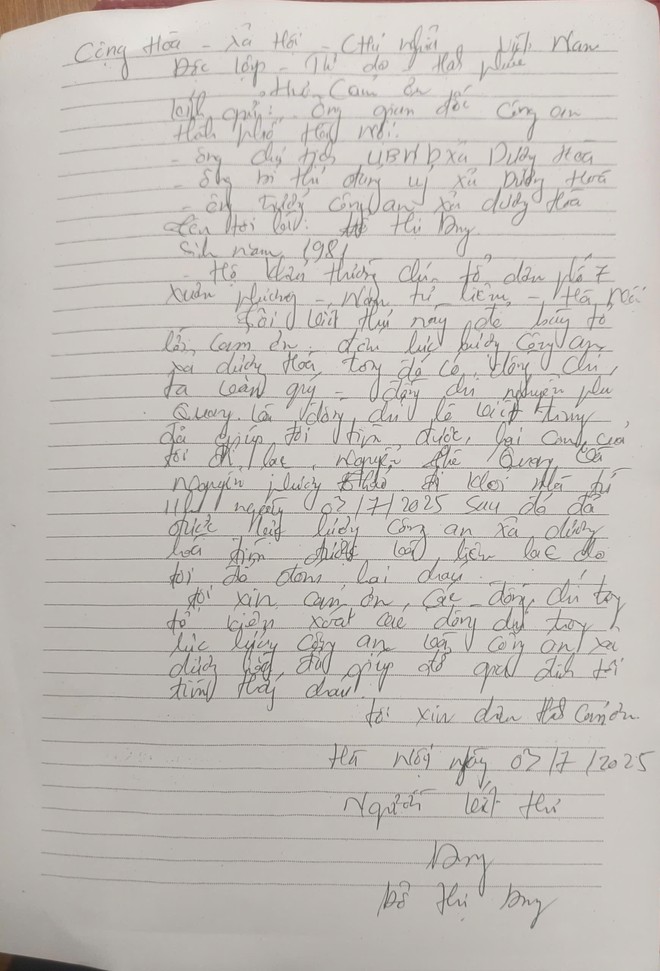 Cộng Hòa - Xã Hội - Chủ nghĩa Việt Nam
Độc lập - Tự do - Hạnh phúc
Thư Cảm ơn
kính gửi: ông giám đốc Công an
thành phố Hà Nội.
- ông chủ tịch UBND xã Dương Hòa
- ông bí thư đảng uỷ xã Dương Hoà
- ông trưởng công an xã dương Hòa
tên tôi là: Đỗ Thị Dung
Sinh năm 1981
- Hộ khẩu thường chú tổ dân phố 7
Xuân phương - Nam từ liêm - Hà Nội
Tôi viết thư này để bày tỏ
lời cảm ơn đến lực lượng công an
xã dương Hoà, trong đó có đồng chí
tạ văn quý - đồng chí nguyễn phú
Quang và đồng chí lê việt trung
đã giúp tôi tìm được lại con của
tôi đi lạc nguyễn thế Quang và
nguyễn phương thảo đi khỏi nhà từ
11h ngày 07/7/2025 sau đó đã
được lực lượng công an xã dương
hoà tìm được và liên lạc cho
tôi để đón lại cháu.
tôi xin cảm ơn các đồng chí trong
tổ kiểm xoát các đồng chí trong
lực lượng công an và công an xã
dương hoà đã giúp đỡ gia đình tôi
tìm thấy cháu.
tôi xin chân thành Cảm ơn
Hà Nội ngày 07/7/2025
Người viết thư
Dung
Đỗ thị Dung